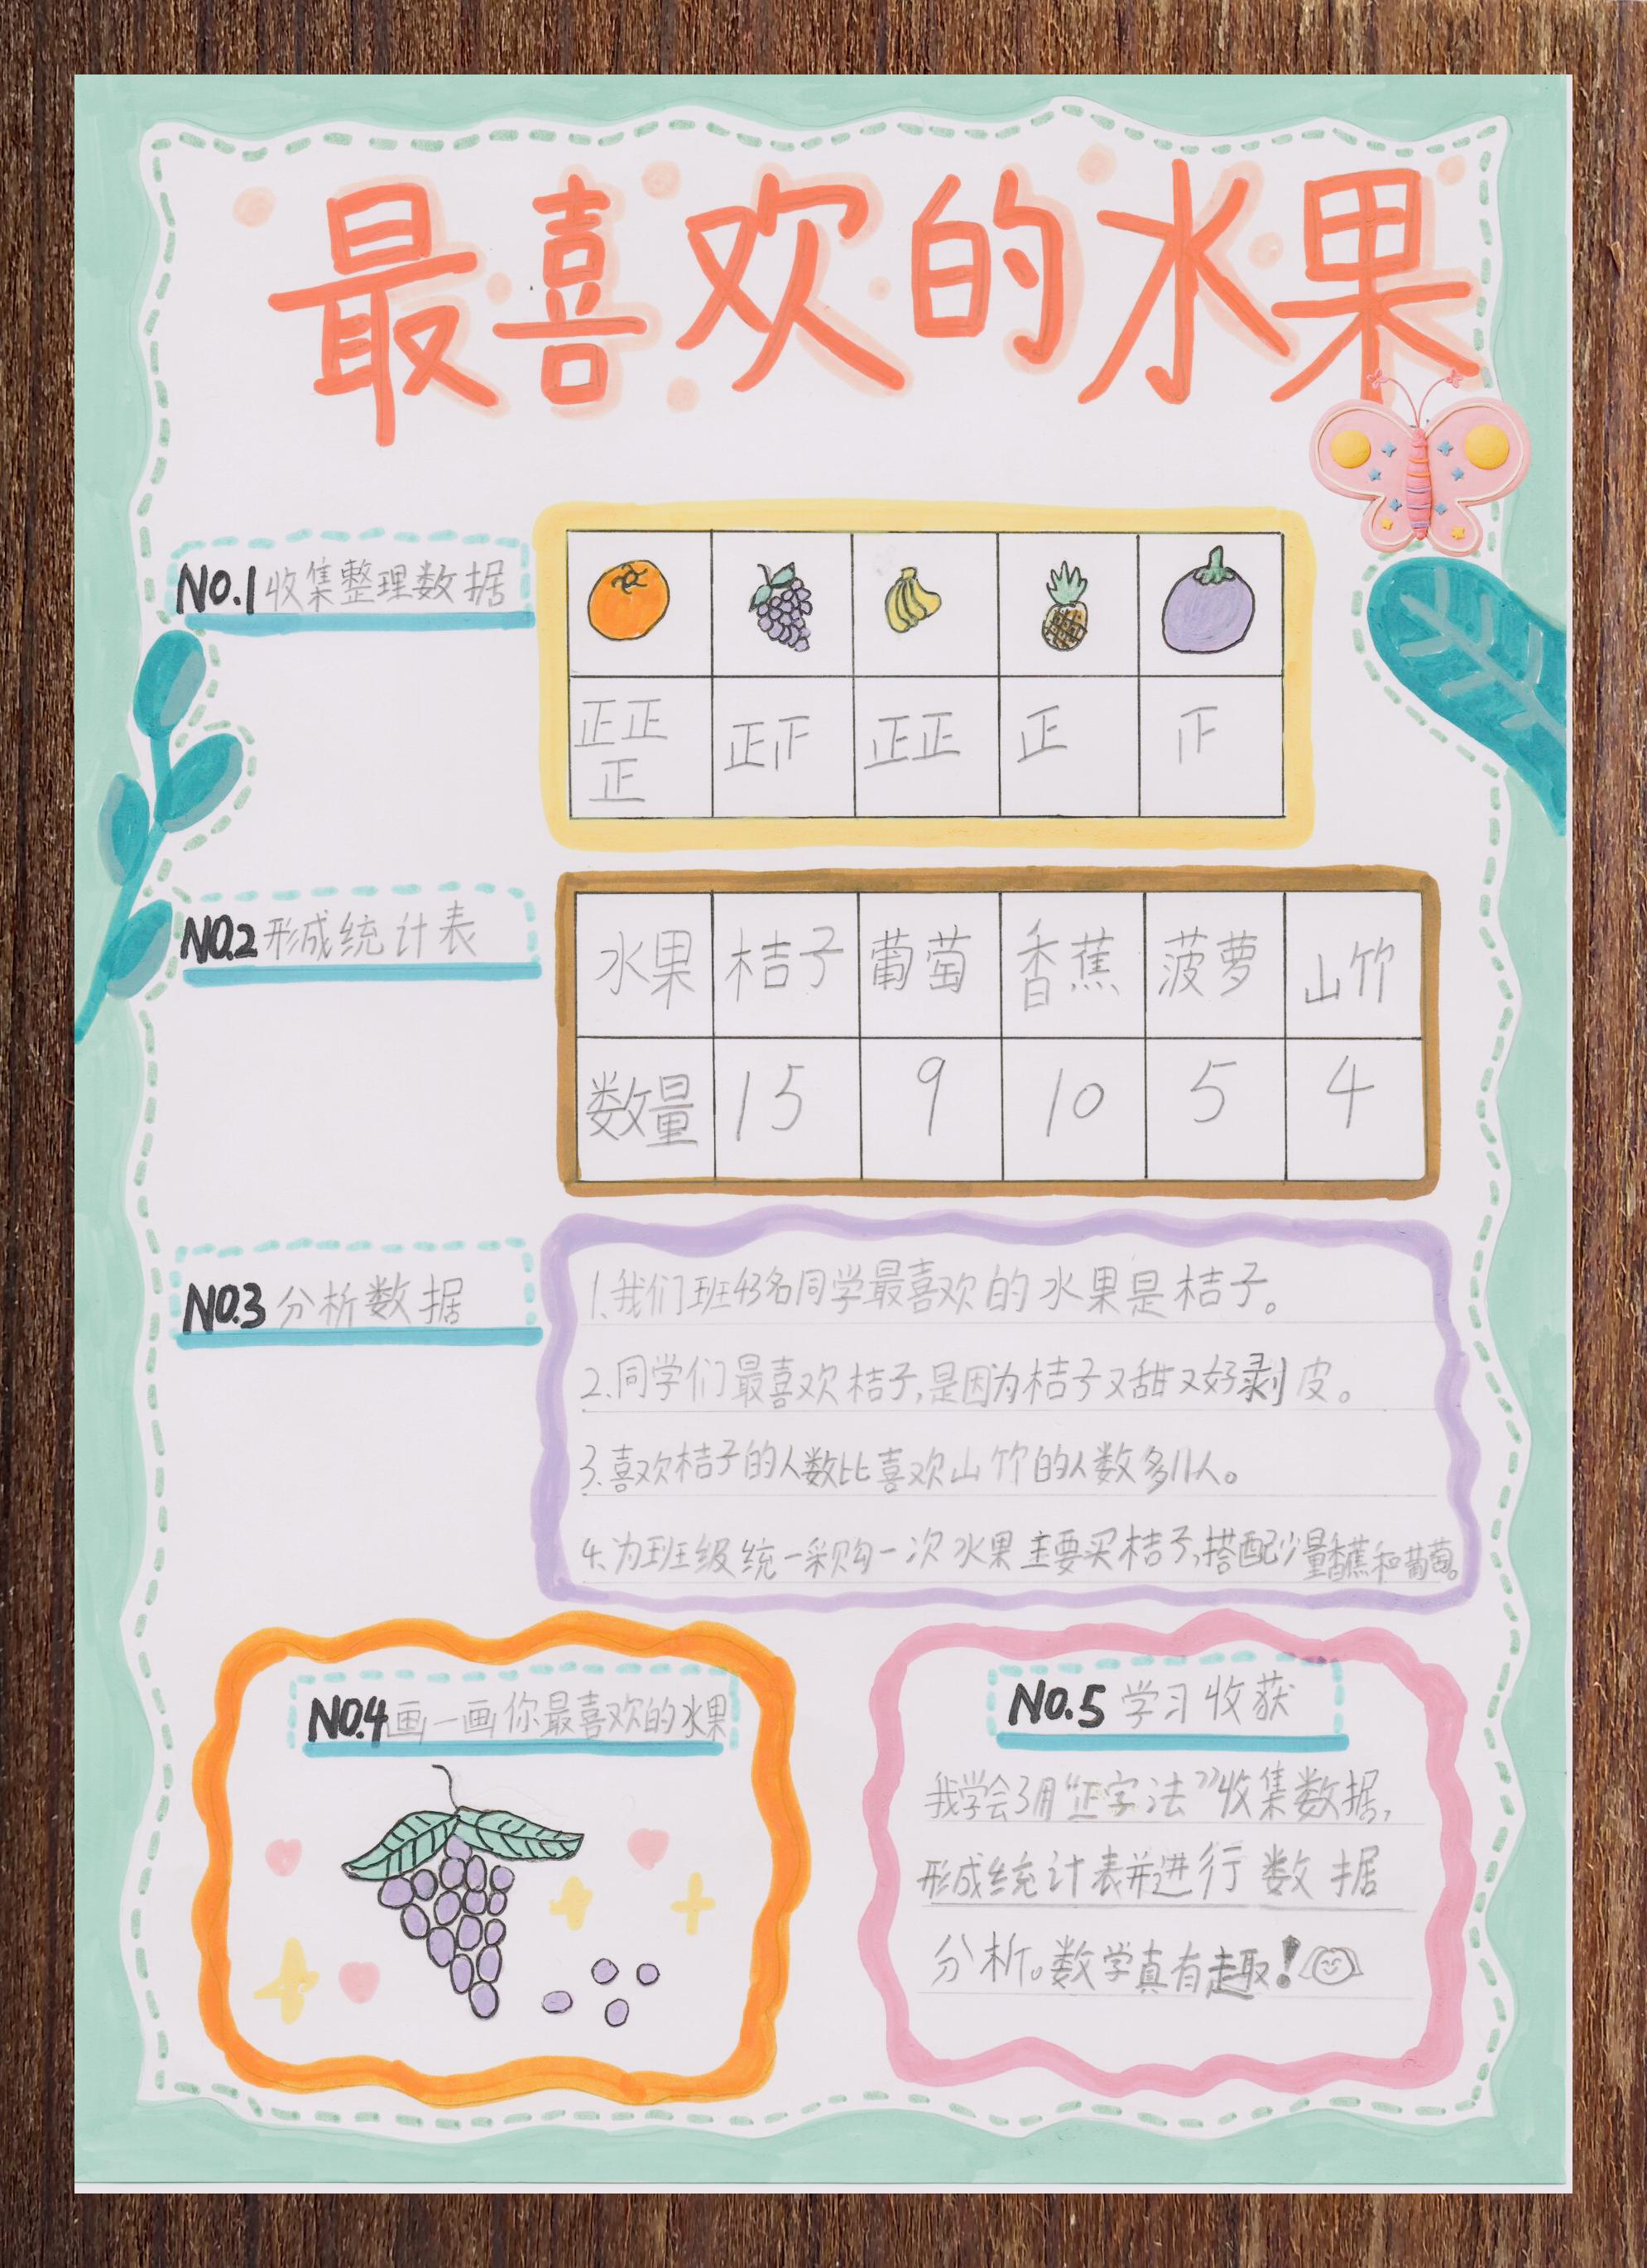 最喜欢的水果
NO.1 收集整理数据
正正正 正正 正正 正 正
NO.2 形成统计表
水果 桔子 葡萄 香蕉 菠萝 山竹
数量 15 9 10 5 4
NO.3 分析数据
1.我们班43名同学最喜欢的水果是桔子。
2.同学们最喜欢桔子,是因为桔子又甜又好剥皮。
3.喜欢桔子的人数比喜欢山竹的人数多11人。
4.为班级统一采购一次水果主要买桔子,搭配少量香蕉和葡萄。
NO.4 画一画你最喜欢的水果
NO.5 学习收获
我学会了用“正字法”收集数据,
形成统计表并进行数据
分析。数学真有趣!